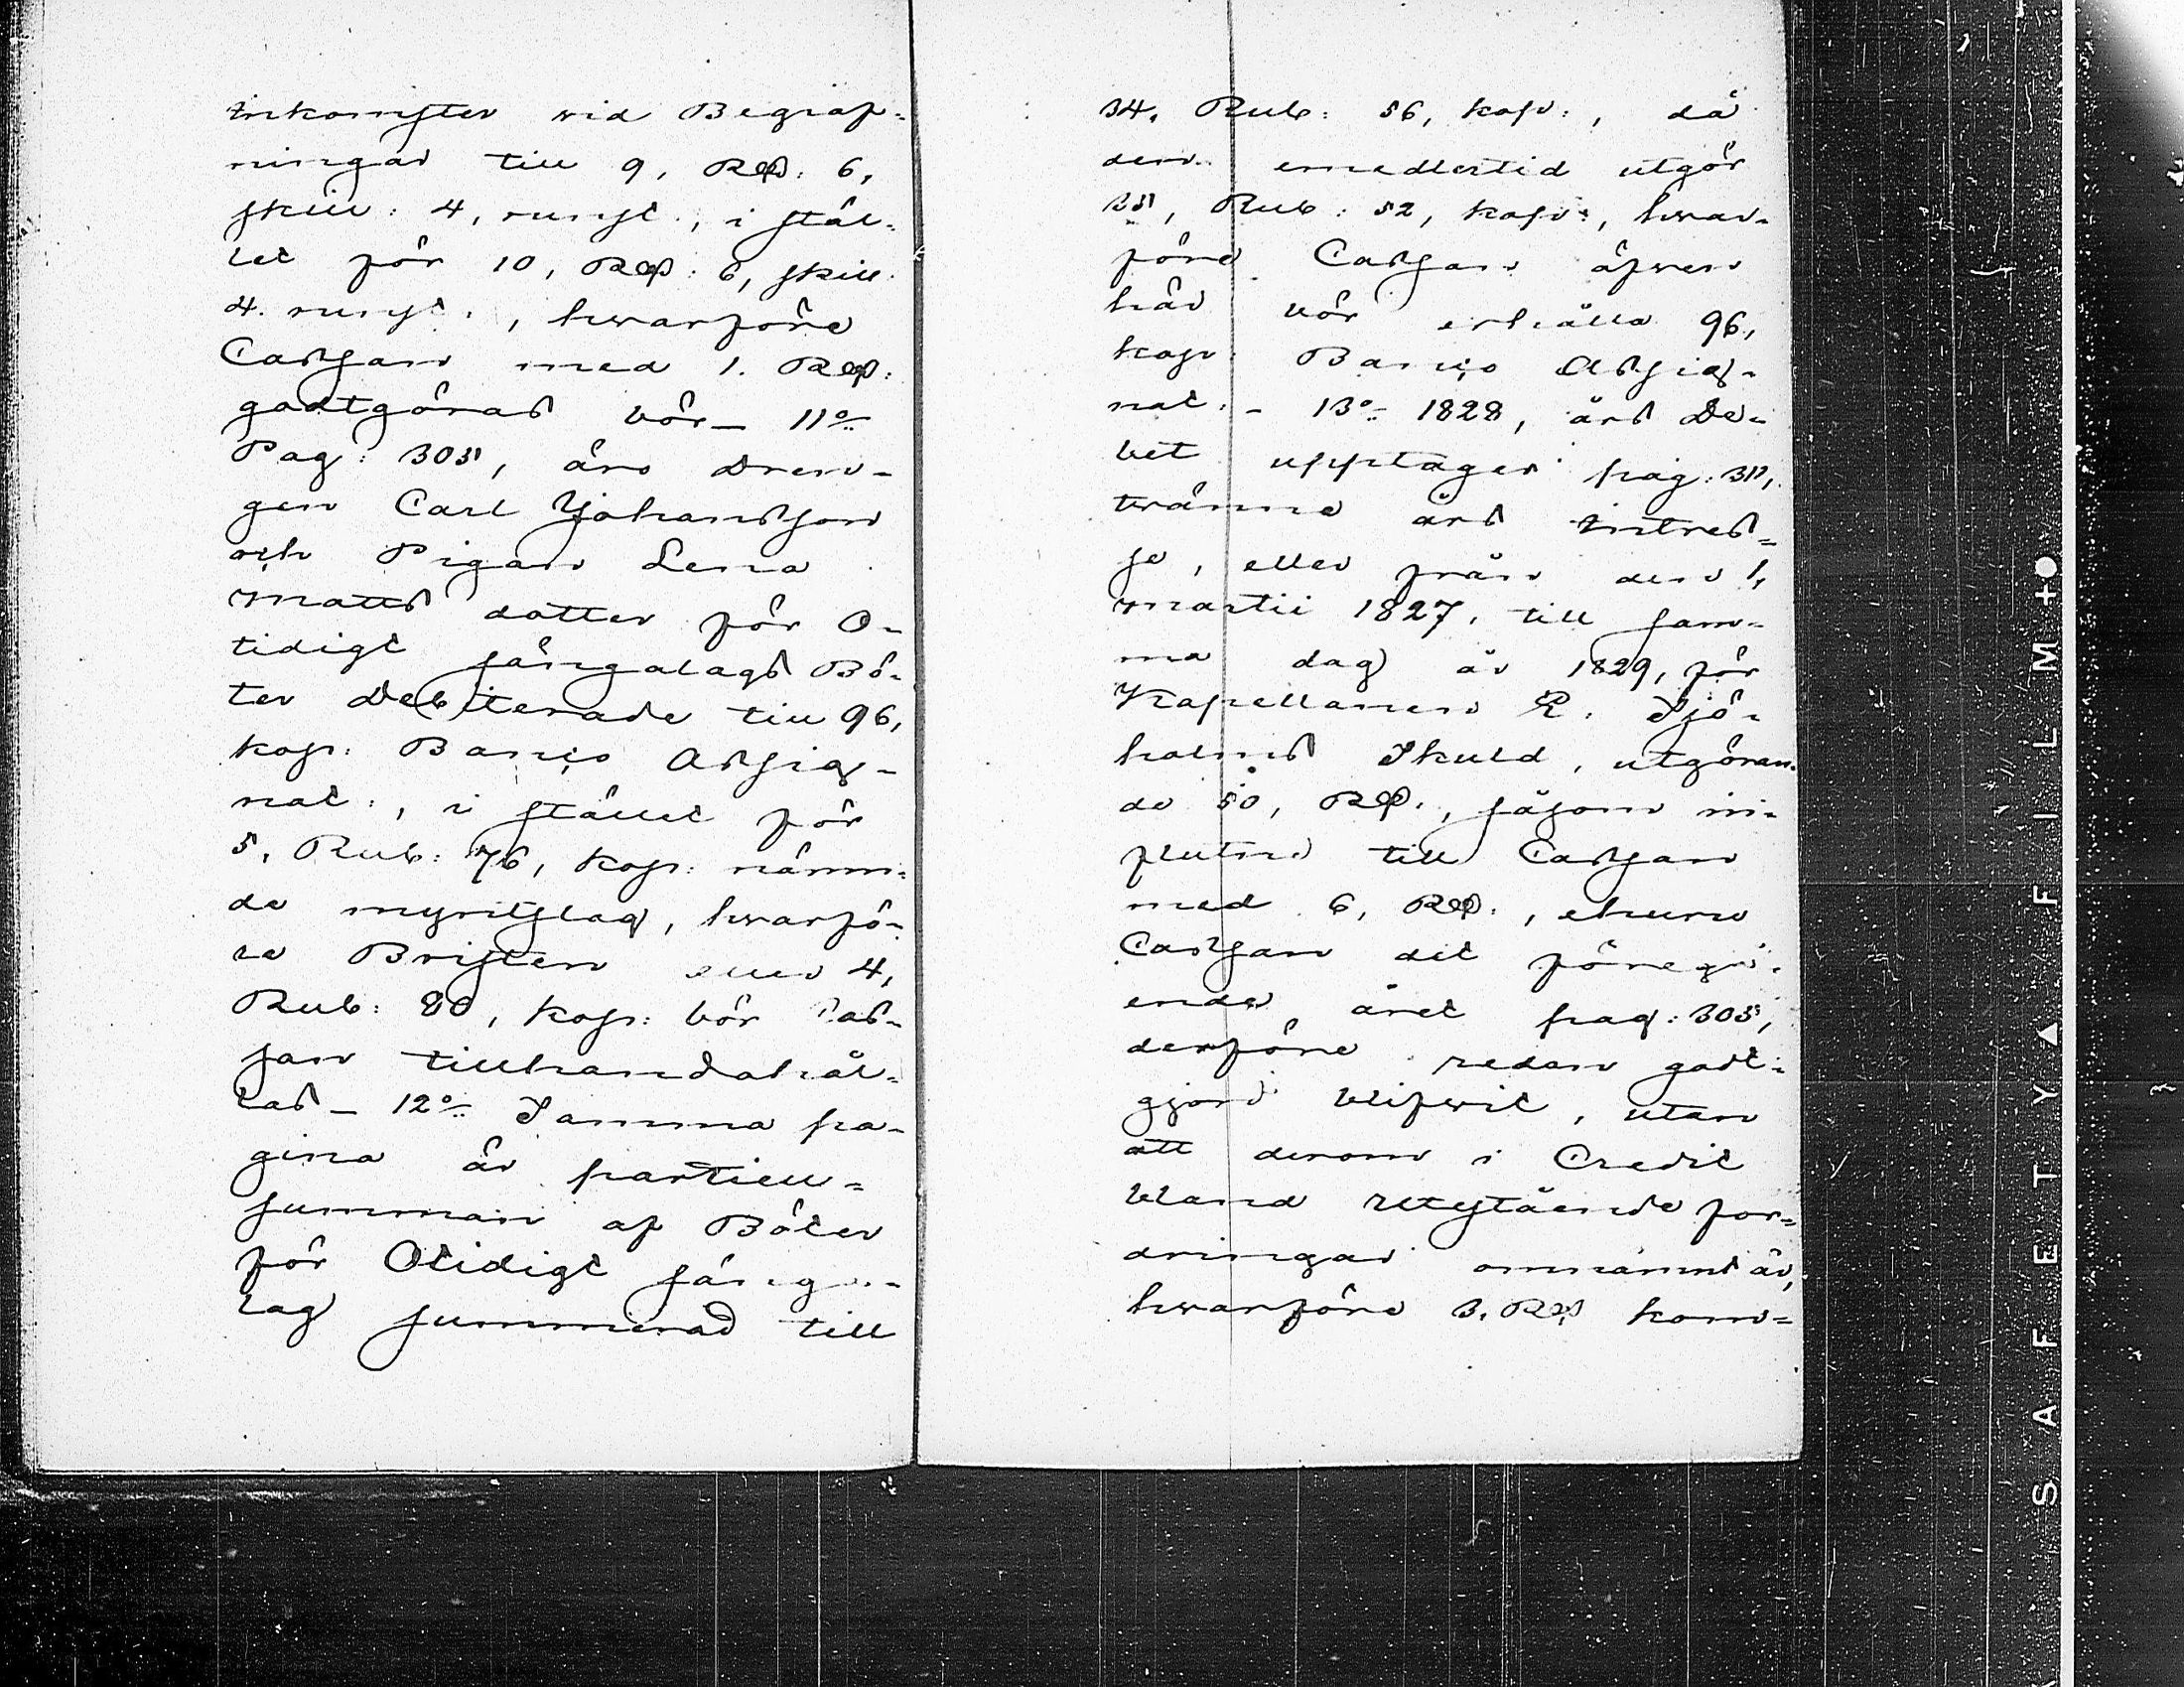 Inkomster vid Begraf=
ningar till 9, Rd: 6,
skill: 4, runst., i stäl=
let för 10, Rd: 6, skill.
4. runst., hwarföre
Cassan med 1. Rd:
godtgöras bör_ 11o
Pag: 305, äro Dren-
gen Carl Johansson
och Pigan Lena
Matts dotter för O-
tidigt sängalags Bö-
ter Debiterade till 96,
kop: Banco Assig-
nat:, i stället för
5. Rub: 76, kop: nämn=
de myntslag, hwarfö-
re Bristen eller 4,
Rub: 80, kop: bör Cas-
san tillhandahål=
las _ 12o Samma pa-
gina är partiel=
summan af Böter
för Otidigt sänga-
lag summerad till
34. Rub: 56, kop:, då
den emedlertid utgör
35, Rub: 52, kop:, hwar-
före Cassan äfven
här bör erhålla 96,
kop: Banco Assig-
nat:- 13o 1828, års De-
bet upptager pag: 311,
tvänne års Intres=
se, eller från den 1,
Martii 1827, till sam-
ma dag år 1829, för
Kapellanen R. Sjö-
holms Skuld, utgöran-
de 50, Rd., såsom in-
fluten till Cassan
med 6, Rd:, ehuru
Cassan det föregå-
ende året pag: 305,
derföre redan godt-
gjord blifvit, utan
att derom i Credit
bland Utestående for=
dringar omnämnt är,
hwarföre 3. Rd kom=
SAFETY FILM